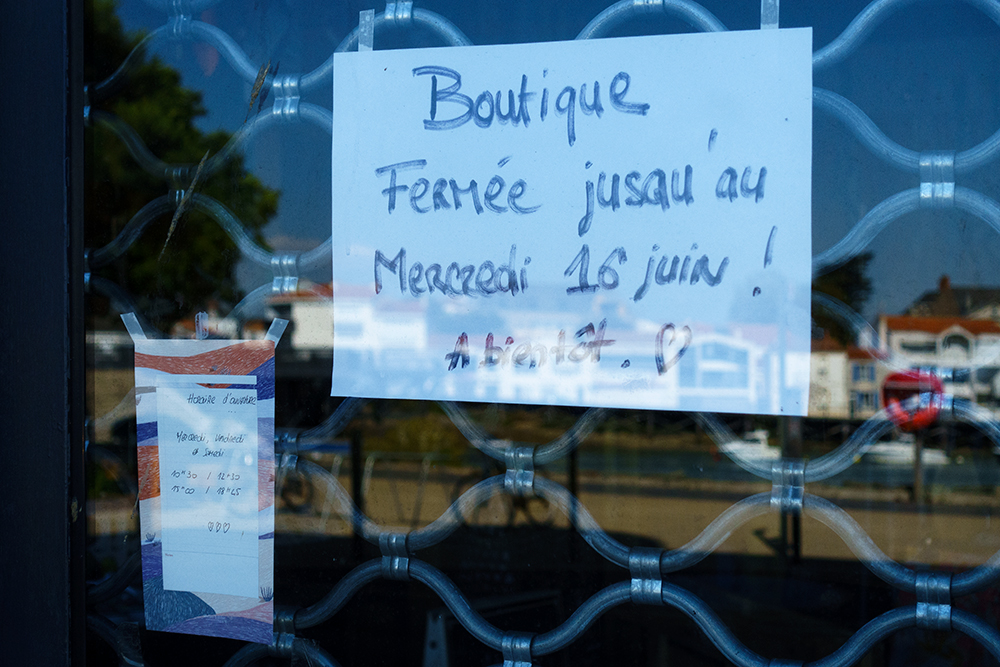 Boutique
Fermée jusqu'au
Mercredi 16 juin !
A bientôt. ♡
Horaire d'ouverture
Mercredi, Vendredi
et Samedi
10H30 / 12H30
15H00 / 18H45
♡♡♡